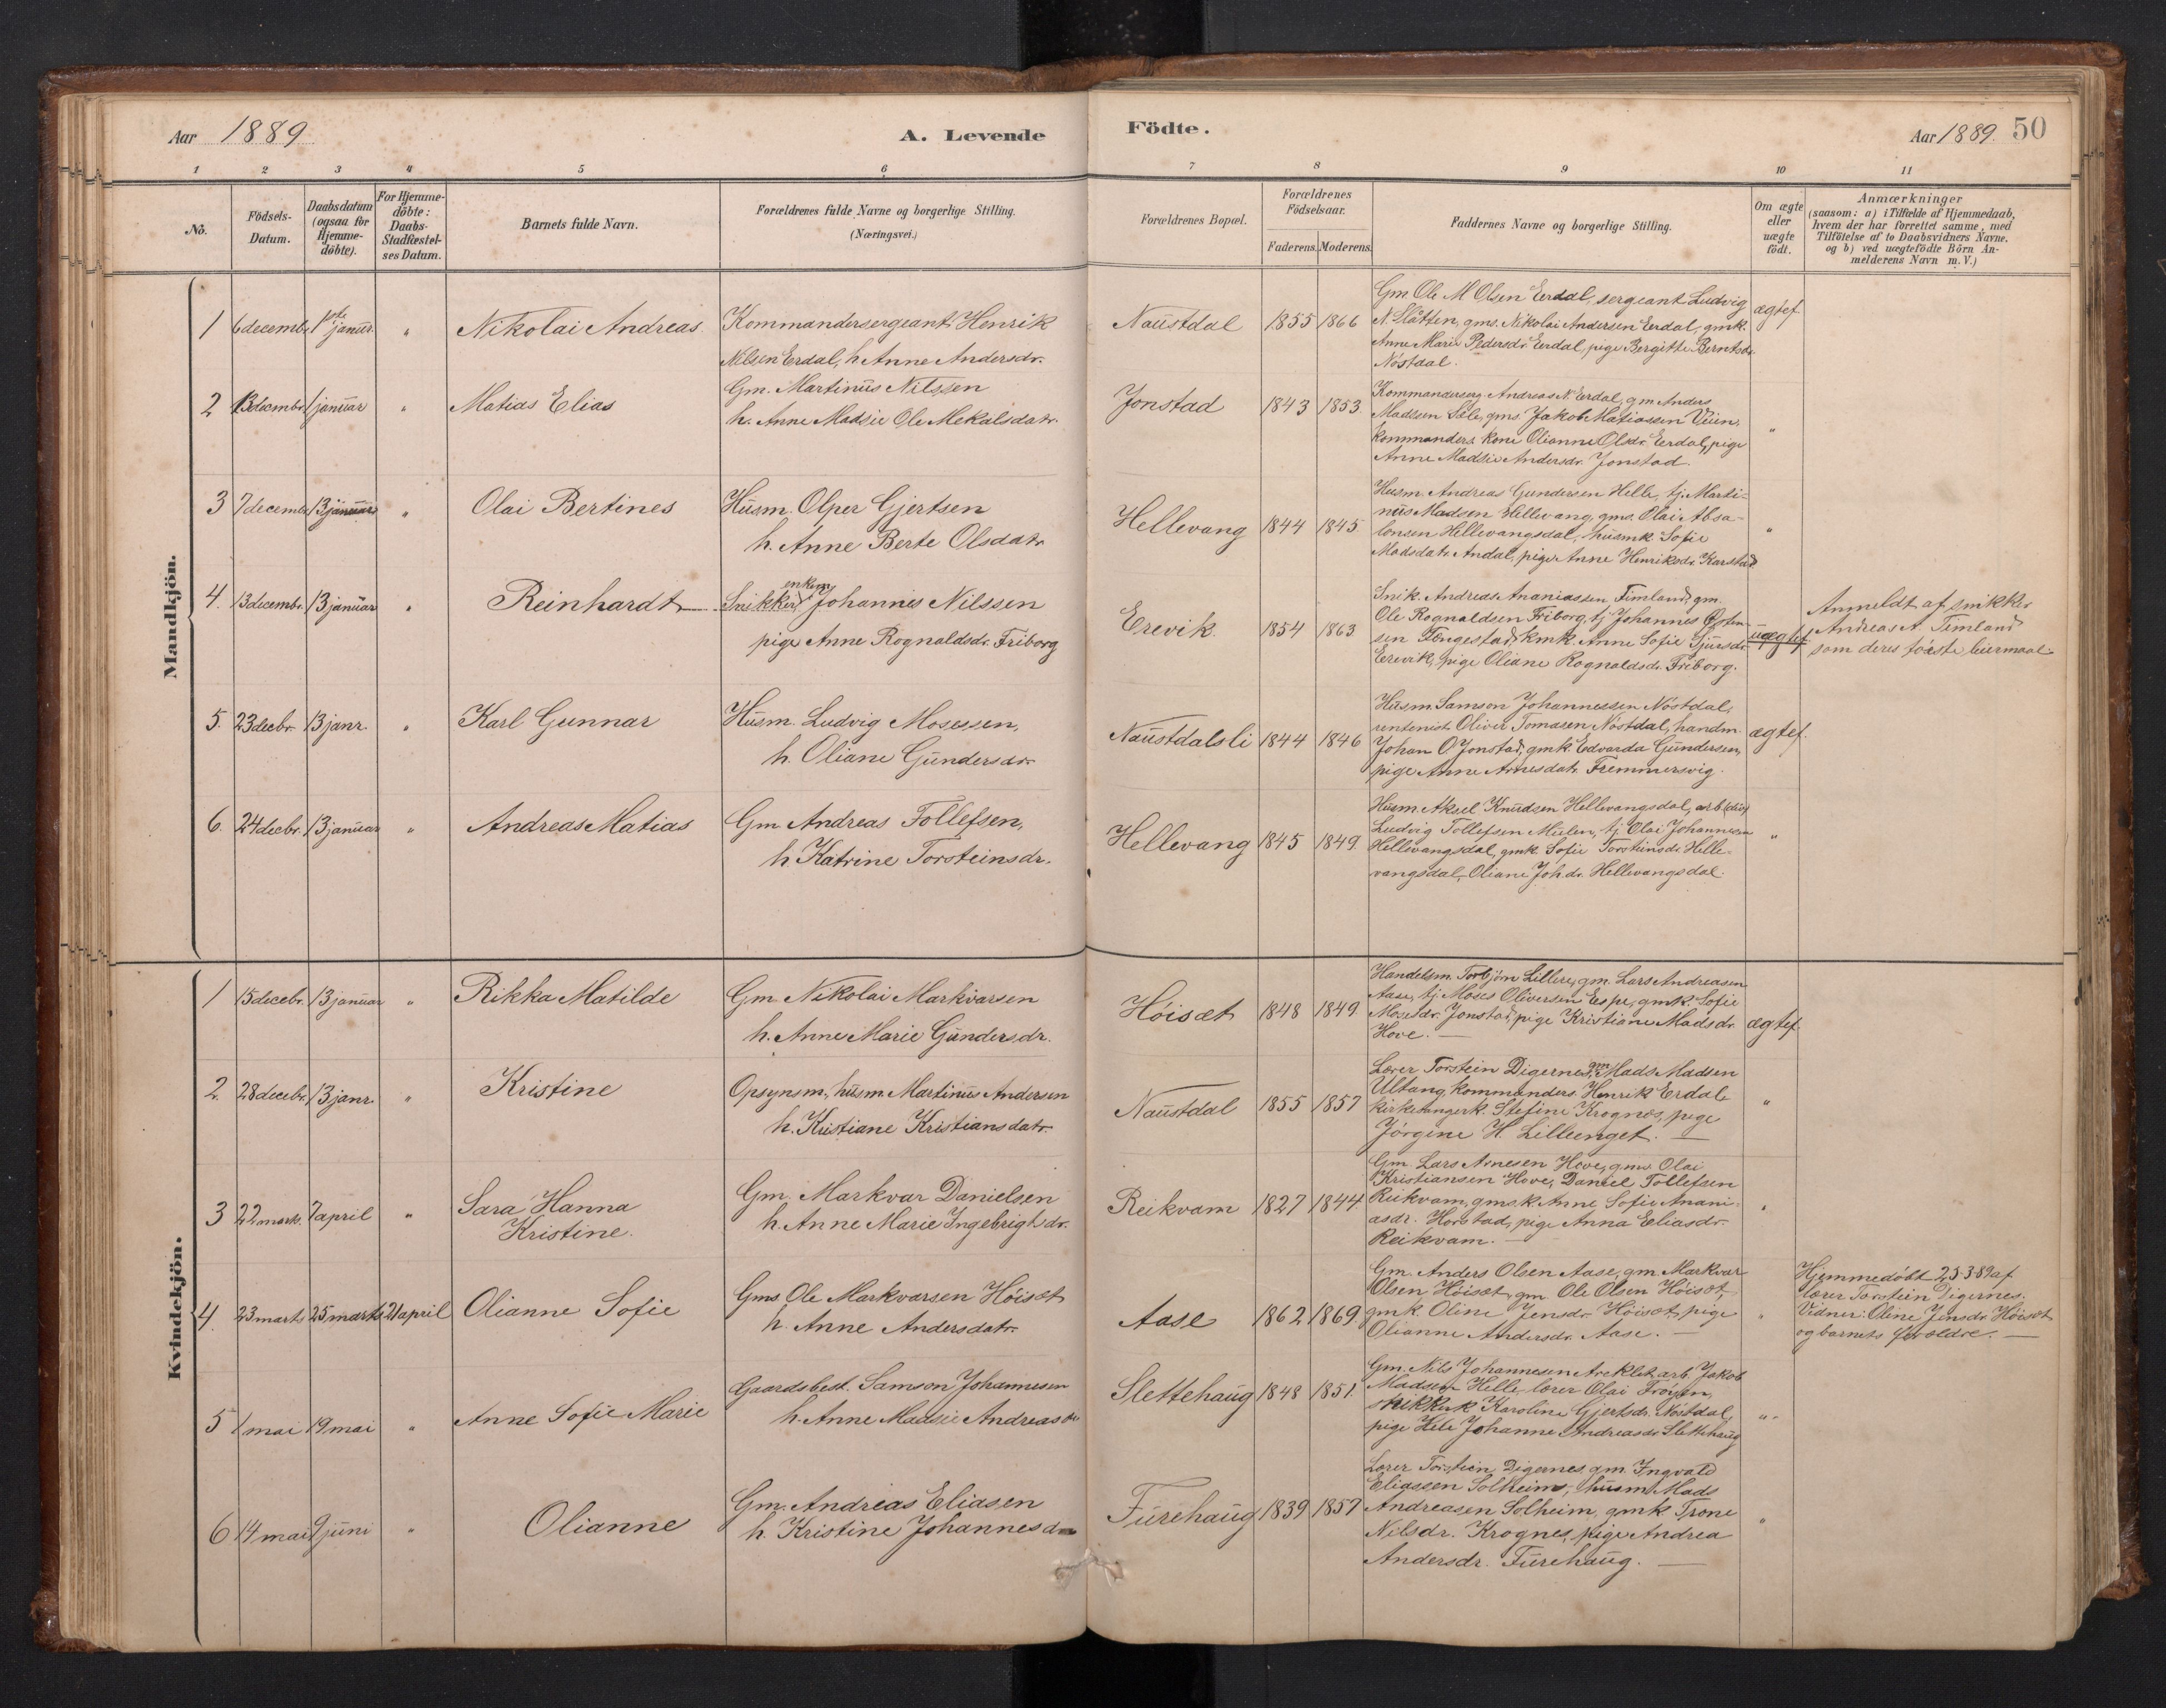 Aar 1889. A. Levende Födte. Aar 1889. 50
1 2 3 4 5 6 7 8 9 10 11
No.
Födsels-
Datum.
Daabsdatum
(ogsaa for
Hjemme-
döbte).
For Hjemme-
döbte:
Daabs-
Stadfæstel-
ses Datum.
Barnets fulde Navn.
Forældrenes fulde Navne og borgerlige Stilling.
(Næringsvei.)
Forældrenes Bopæl.
Forældrenes
Födselsaar.
Faderens. Moderens.
Faddernes Navne og borgerlige Stilling.
Om ægte
eller
uægte
födt.
Anmærkninger
(saasom: a) i Tilfælde af Hjemmedaab,
hvem der har forrettet samme, med
Tilföielse af to Daabsvidners Navne,
og b) ved uægtefödte Börn An-
melderens Navn m. V.)
Mandkjön.
1 6 decembr. 1ste januar. " Nikolai Andreas.
Kommandersergeant Henrik
Nilsen Erdal, h. Anne Andersdr.
Naustdal 1855 1866
Gm. Ole M Olsen Erdal, sergeant Ludvig
N. Slåtten, gms. Nikolai Andersen Erdal, gmk.
Anne Marie Pedersdr. Erdal, pige Bergitte Berntsdr.
Nøstdal.
ægtef.
2 13 decmbr. 1 januar " Matias Elias
Gm. Martinus Nilssen
h. Anne Madsie Ole Mekalsdatr.
Jonstad 1843 1853.
Kommanderserg. Andreas N. Erdal, gm Anders
Madssen Sæle, gms. Jakob Matiassen Vieen,
kommanders. kone Olianne Olsdr. Erdal, pige
Anne Madsie Andersdr. Jonstad.
"
3 7 decembr 13 januar " Olai Bertines
Husm. Olper Gjertsen
h. Anne Berte Olsdatr
Hellevang 1844 1845
Husm. Andreas Gundersen Helle, tj. Marti-
nus Madsen Hellevang, gms. Olai Absa-
lonsen Hellevangsdal, husmk. Sofie
Madsdatr. Andal, pige Anne Henriksdr. Karstad
"
4. 13 decembr. 13 januar " Reinhardt
Snikker, enkem. Johannes Nilssen
pige Anne Rognaldsdr. Friborg
Erevik. 1854 1863
Snik. Andreas Ananiassen Timland, gm.
Ole Rognaldsen Friborg, tj. Johannes
sen kmk. Anne Sofie Sjursdr.
Erevik, pige Oliane Rognaldsdr. Friborg.
uægtef
Anmeldt af snikker
Andreas A. Timland
som deres første leiermaal.
5. 23 decbr. 13 janr. " Karl Gunnar
Husm. Ludvig Mosessen,
h. Oliane Gundersdr.
Naustdalsli 1844 1846
Husm. Samson Johannessen Nöstdal,
rentenist Oliver Tomasen Nöstdal, handm.
Johan O. Jonstad, gmk. Edvarda Gundersen,
pige Anne Arnesdatr. Fremmersvig.
ægtef.
6. 24 decbr. 13 januar " Andreas Matias
Gm Andreas Tollefsen,
h. Katrine Torsteinsdr.
Hellevang 1845 1849.
Husm. Aksel Knudsen Hellevangsdal, arb.
Ludvig Tollefsen Mielen, tj. Olai Johannesen
Hellevangsdal, gmk. Sofie Torsteinsdr. Helle-
vangsdal, Oliane Joh.dr. Hellevangsdal.
"
Kvindekjön.
1 15 decebr. 13 januar " Rikka Matilde
Gm. Nikolai Markvarsen
h. Anne Marie Gundersdr.
Höisæt 1848 1849
Handelsm. Torbjørn Lillere, gm. Lars Andreasen
Aase, tj. Moses Oliversen Espe, gmk. Sofie
Mosesdr. Jonstad, pige Kristiane Madsdr.
Hove.
ægtef
2. 28 decebr. 13 janr. " Kristine
Opsynsm., husm. Martinus Andersen
h. Kristiane Kristiansdatr.
Naustdal 1855 1857
Lærer Torstein Digernes, gm Mads Madsen
Ultang, kommanders. Henrik Erdal
kirkesangerk. Stefine Krognæs, pige
Jörgine H. Lilleenget.
"
3 22 marts. 7 april " Sara Hanna
Kristine.
Gm. Markvar Danielsen
h. Anne Marie Ingebrigtsdr.
Reikvam 1827 1844
Gm. Lars Arnesen Hove, gms. Olai
Kristiansen Hove, Daniel Tollefsen
Reikvam, gms.k. Anne Sofie Anani-
asdr. Horstad, pige Anna Eliasdr.
Reikvam.
"
4. 23 marts 25 marts 21 april Olianne Sofie
Gms. Ole Markvarsen Höisæt
h. Anne Andersdatr.
Aase 1862 1869.
Gm. Anders Olsen Aase, gm. Markvar
Olsen Höisæt, gm Ole Olsen Höisæt,
gmk. Oline Jensdr. Höisæt, pige
Olianne Andersdr. Aase.
"
Hjemmedöbt 25-3-89 af
lærer Torstein Digernes.
Vidner: Oline Jensdr. Höisæt
og barnets forældre.
5 1 mai 19 mai " Anne Sofie Marie
Gaardsbest. Samson Johannesen
h. Anne Madsie Andreasdr
Slettehaug 1848 1851.
Gm. Nils Johannesen Areklet, arb. Jakob
Madsen Helle, lærer Olai Fröysen,
snikkerk. Karoline Gjertsdr. Nöstdal,
pige Hele Johanne Andreasdr. Slettehaug
"
6 14 mai 9 juni " Olianne
Gm. Andreas Eliasen
h. Kristine Johannesdr
Furehaug 1839 1857
Lærer Torstein Digernes, gm. Ingvald
Eliassen Solheim, husm. Mads
Andreasen Solheim, gmk. Trone
Nilsdr. Krognes, pige Andrea
Andersdr. Furehaug.
"